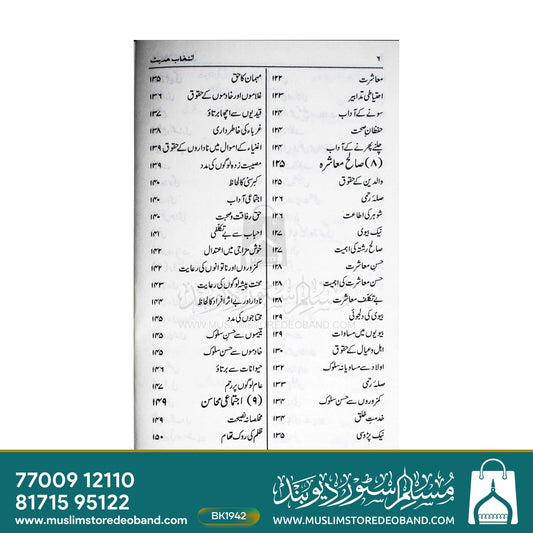 ۶
انتخاب حدیث
معاشرت ۱۲۲
احتیاطی تدابیر ۱۲۳
سونے کے آداب ۱۲۴
حفظانِ صحت ۱۲۴
چلنے پھرنے کے آداب ۱۲۴
(۸) صالح معاشرہ ۱۲۵
والدین کے حقوق ۱۲۵
صلہ رحمی ۱۲۶
شوہر کی اطاعت ۱۲۶
نیک بیوی ۱۲۷
صالح رشتہ کی اہمیت ۱۲۷
حسن معاشرت ۱۲۸
حسن معاشرت کی اہمیت ۱۲۸
بے تکلف معاشرت ۱۲۸
بیوی کی دلجوئی ۱۲۹
بیویوں میں مساوات ۱۲۹
اہل و عیال کے حقوق ۱۳۰
اولاد سے مساویانہ سلوک ۱۳۲
صلہ رحمی ۱۳۳
کمزوروں سے حسن سلوک ۱۳۴
خدمتِ خلق ۱۳۴
نیک پڑوسی ۱۳۵
مہمان کا حق ۱۳۵
غلاموں اور خادموں کے حقوق ۱۳۶
قیدیوں سے اچھا برتاؤ ۱۳۷
غرباء کی خاطر داری ۱۳۸
اغنیاء کے اموال میں ناداروں کے حقوق ۱۳۹
مصیبت زدہ لوگوں کی مدد ۱۳۹
کبر سنی کا لحاظ ۱۴۰
اجتماعی آداب ۱۴۰
حق رفاقت وصحبت ۱۴۰
احباب سے بے تکلفی ۱۴۱
خوش مزاجی میں اعتدال ۱۴۲
کمزوروں اور ناتوانوں کی رعایت ۱۴۲
محنت پیشہ لوگوں کی رعایت ۱۴۳
نادار اور بے اثر افراد کا لحاظ ۱۴۴
محتاجوں کی مدد ۱۴۵
یتیموں سے حسنِ سلوک ۱۴۵
خادموں سے حسنِ سلوک ۱۴۵
حیوانات سے برتاؤ ۱۴۶
عام لوگوں پر رحم ۱۴۷
(۹) اجتماعی محاسن ۱۴۹
مخلصانہ نصیحت ۱۴۹
ظلم کی روک تھام ۱۵۰
مسلم سٹور دیوبند
WWW.MUSLIMSTOREDEOBAND.COM
77009 12110
81715 95122
www.muslimstoredeoband.com
BK1942
مسلم سٹور دیوبند
WWW.MUSLIMSTOREDEOBAND.COM